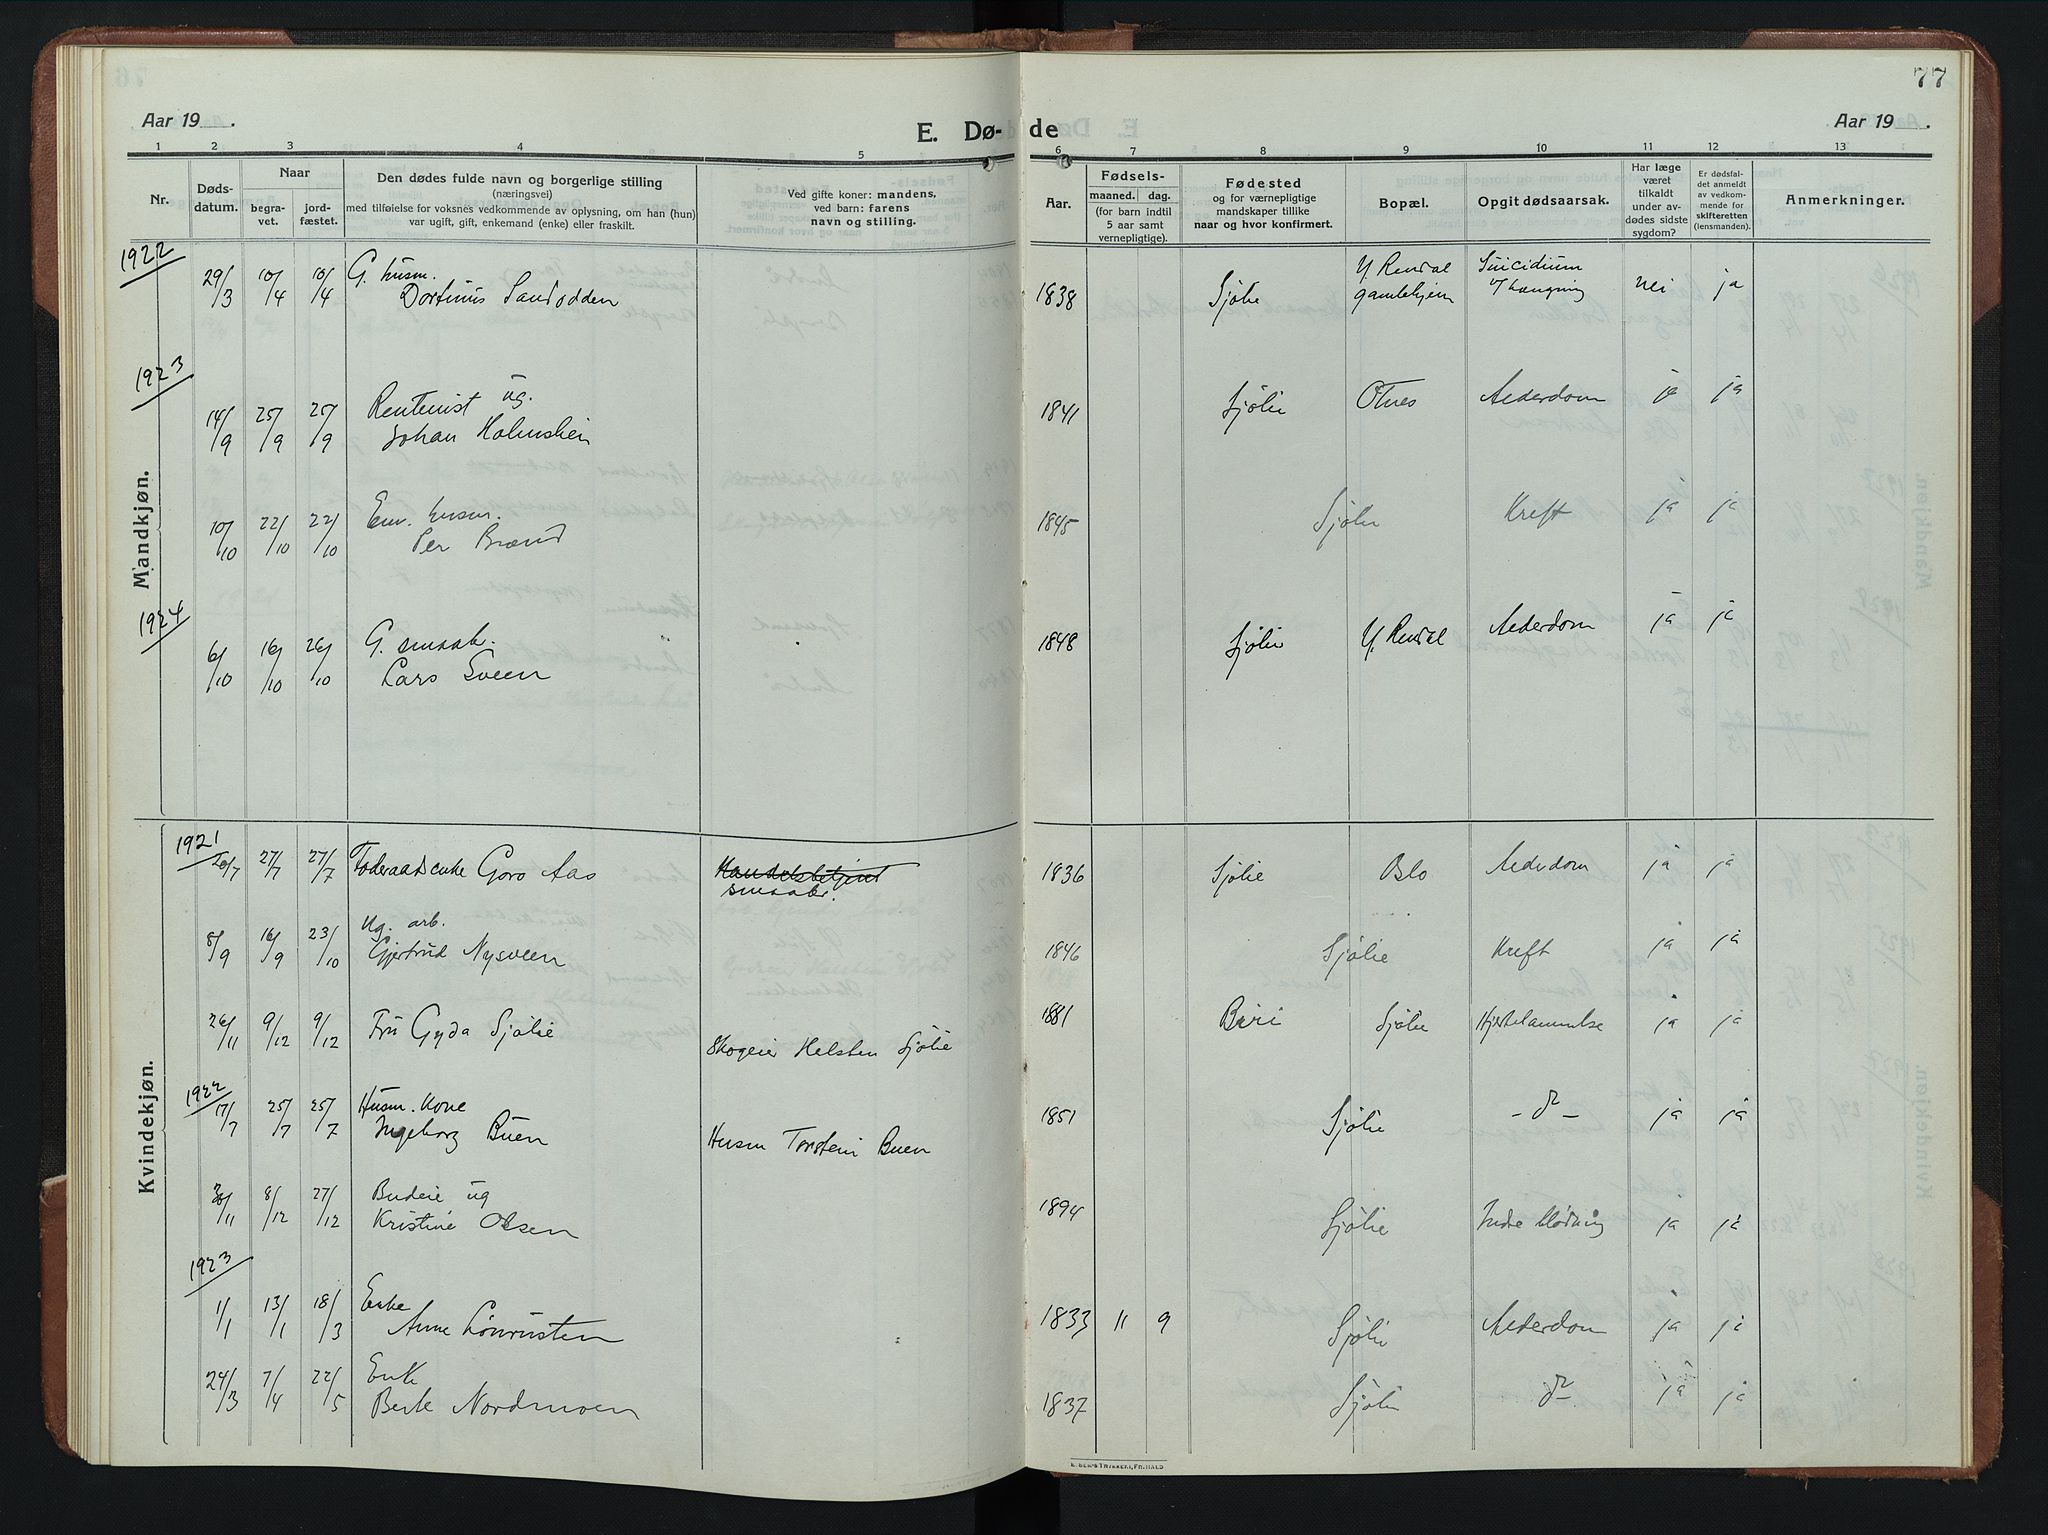 77
Aar 19 .
E. Dø- de
Aar 19 .
1 2 3 4 5 6 7 8 9 10 11 12 13
Nr.
Døds-
datum.
Naar
begra-
vet.
jord-
fæstet.
Den dødes fulde navn og borgerlige stilling
(næringsvei)
med tilføielse for voksnes vedkommende av oplysning, om han (hun)
var ugift, gift, enkemand (enke) eller fraskilt.
Ved gifte koner: mandens,
ved barn: farens
navn og stilling.
Aar.
Fødsels-
maaned. dag.
(for barn indtil
5 aar samt
vernepligtige).
Fødested
og for værnepligtige
mandskaper tillike
naar og hvor konfirmert.
Bopæl.
Opgit dødsaarsak.
Har læge
været
tilkaldt
under av-
dødes sidste
sygdom?
Er dødsfal-
det anmeldt
av vedkom-
mende for
skifteretten
(lensmanden).
Anmerkninger.
Mandkjøn.
1922
29/3 10/4 10/4 G. husm.
Dortinus Sandodden 1838 Sjølie Y. Rendal
gamlehjem Suicidium
v/ hængning nei ja
1923
14/9 25/9 25/9 Rentenist ug.
Johan Holmstien 1841 Sjølie Otnes Alderdom ja ja
10/10 22/10 22/10 Em. husm.
Per Brænd 1845 Sjølie Kreft ja ja
1924
6/10 16/10 26/10 G. smaabr.
Lars Sveen 1848 Sjølie Y. Rendal Alderdom ja ja
Kvindekjøn.
1921
20/7 27/7 27/7 Føderaadsenke Goro Aas Handelsbetjent
smaabr. 1836 Sjølie Oslo Alderdom ja ja
8/9 16/9 23/10 Ug. arb.
Gjertrud Nysveen 1846 Sjølie Kreft ja ja
26/11 9/12 9/12 Fru Gyda Sjølie
Skogeier Helsten Sjølie 1881 Biri Sjølie Hjertelammelse ja ja
1922
17/7 25/7 25/7 Husm. kone
Ingeborg Buen Husm Torstein Buen 1851 Sjølie - do - ja ja
30/11 8/12 27/12 Budeie ug
Kristine Olsen 1894 Sjølie Indre blødning ja ja
1923
1/1 13/1 18/3 Enke
Anne Lønrusten 1833 11 9 Sjølie Alderdom ja ja
24/3 7/4 22/5 Enke
Berte Nordmoen 1837 Sjølie do ja ja